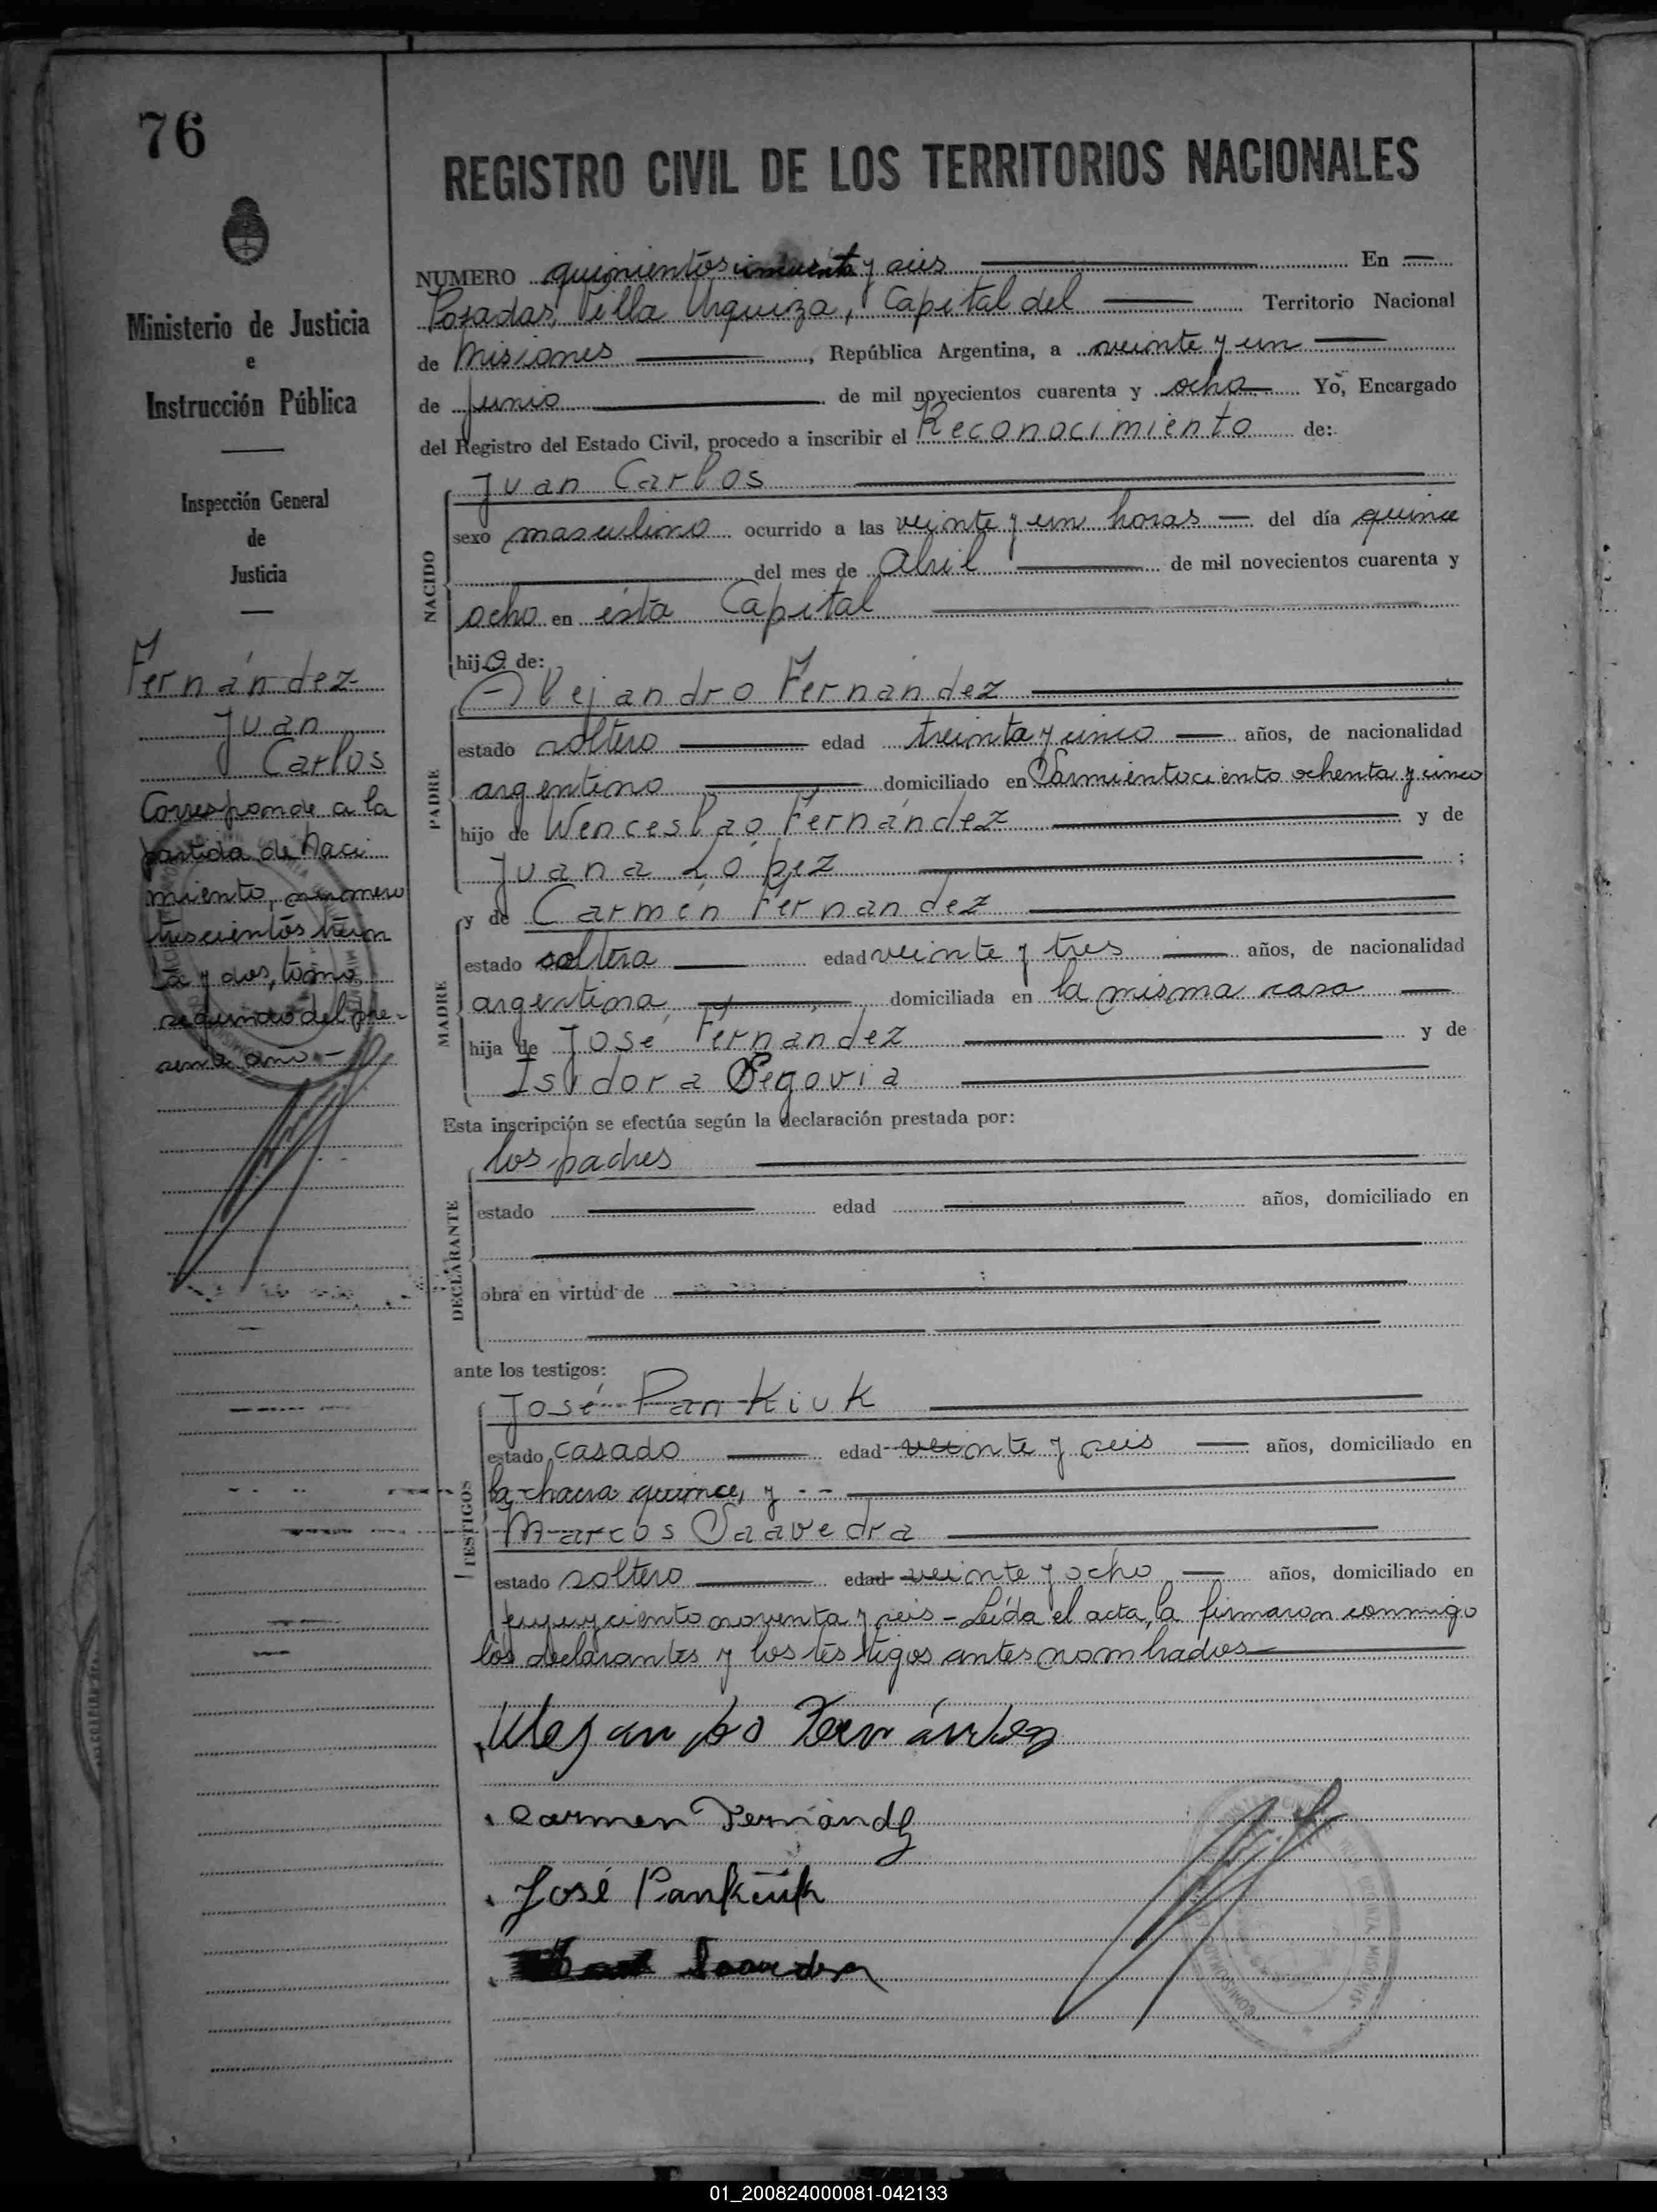 76
Ministerio de Justicia
e
Instrucción Pública
Inspección General
de
Justicia
Fernández
Juan
Carlos
Corresponde a la
partida de Naci
miento, número
trescientos trein
ta y dos, tomo
segundo del pre-
sente año.-
REGISTRO CIVIL DE LOS TERRITORIOS NACIONALES
NUMERO quinientos cincuenta y seis En
Posadas, Villa Urquiza, Capital del Territorio Nacional
de Misiones , República Argentina, a veinte y un
de junio de mil novecientos cuarenta y ocho Yo, Encargado
del Registro del Estado Civil, procedo a inscribir el Reconocimiento de:
Juan Carlos
NACIDO
sexo masculino ocurrido a las veinte y un horas del día quince
del mes de Abril de mil novecientos cuarenta y
ocho en ésta Capital
hijo de:
Alejandro Fernández
PADRE
estado soltero edad treinta y cinco años, de nacionalidad
argentino domiciliado en Sarmiento ciento ochenta y cinco
hijo de Wenceslao Fernandez y de
Juana López ;
y de Carmen Fernandez
MADRE
estado soltera edad veinte y tres años, de nacionalidad
argentina domiciliada en la misma casa
hija de José Fernández y de
Isidora Segovia
Esta inscripción se efectúa según la declaración prestada por:
los padres
DECLARANTE
estado edad años, domiciliado en
obra en virtud de
ante los testigos:
José Pankiuk
TESTIGOS
estado casado edad veinte y seis años, domiciliado en
la chacra quince, y
Marcos Saavedra
estado soltero edad veinte y ocho años, domiciliado en
Jujuy ciento noventa y seis - Leída el acta, la firmaron conmigo
los declarantes y los testigos antes nombrados
Alejandro Fernández
Carmen Fernández
José Pankiuk
Saavedra
01_200824000081-042133